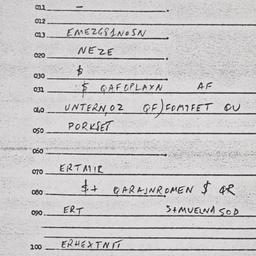 011 -
012
013 EMEZG81NOSN
020 NEZE
030 $
031 $ QAFOPLAYN AF
040 UNTERN,OZ QF)FOMTFET QU
050 PORKSET
060
070 ERTMIR
080 $+ QARAJNROMEN $ QR
090 ERT S+MUELNA SOD
100 ERHEXTNIT